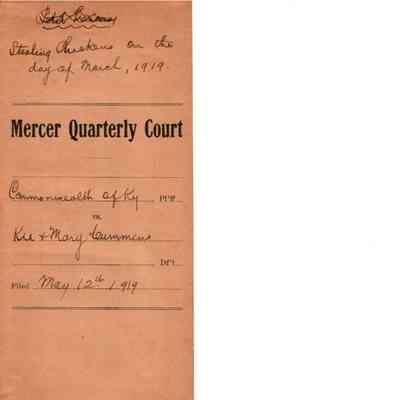 Stealing Chickens on the
day of March, 1919.
Mercer Quarterly Court
Commonwealth of Ky PL'FF.
vs.
Kie & Mary Cummens
DF'T.
Filed May 12th 1919